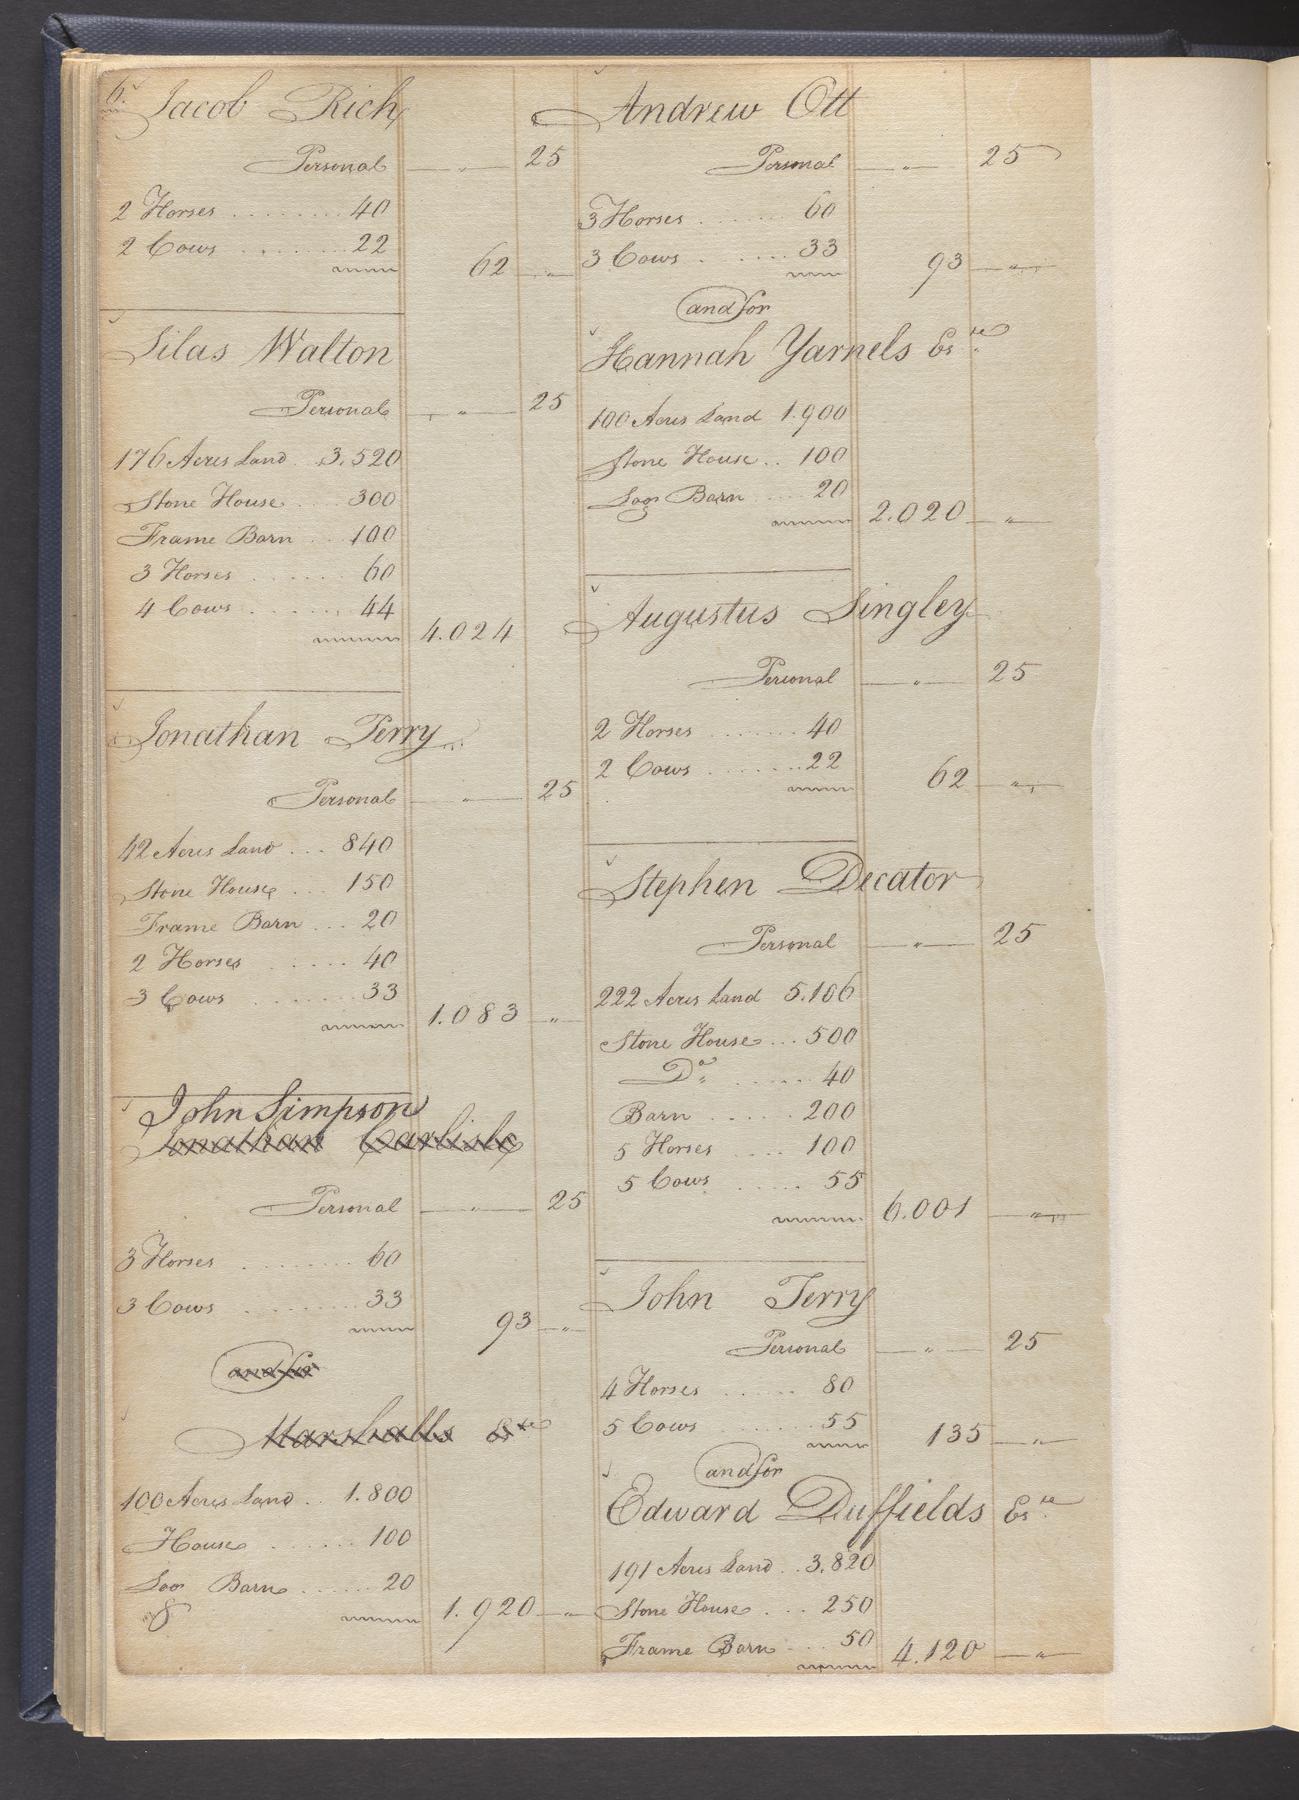 6.
Jacob Rich
Personal — " — 25
2 Horses ........ 40
2 Cows ........ 22
62 — "
Silas Walton
Personal — " — 25
176 Acres Land .. 3.520
Stone House .... 300
Frame Barn ... 100
3 Horses ...... 60
4 Cows ...... 44
4.024
Jonathan Terry
Personal — " — 25
42 Acres Land ... 840
Stone House ... 150
Frame Barn ... 20
2 Horses ..... 40
3 Cows ....... 33
1.083 — "
John Simpson
Jonathan Carlisle
Personal — " — 25
3 Horses ........ 60
3 Cows ........ 33
93 — "
and for
Marshalls Este
100 Acres Land .. 1.800
House ...... 100
Log Barn ..... 20
1.920 — "
Andrew Ott
Personal — " — 25
3 Horses ...... 60
3 Cows ...... 33
93 — "
and for
Hannah Yarnels Este
100 Acres Land 1.900
Stone House .. 100
Log Barn .... 20
2.020 — "
Augustus Singley
Personal — " — 25
2 Horses ....... 40
2 Cows ....... 22
62 — "
Stephen Decator
Personal — " — 25
222 Acres Land 5.106
Stone House ... 500
Do ..... 40
Barn ..... 200
5 Horses .... 100
5 Cows ..... 55
6.001 — "
John Terry
Personal — " — 25
4 Horses ..... 80
5 Cows ...... 55
135 — "
and for
Edward Duffields Este
191 Acres Land .. 3.820
Stone House ... 250
Frame Barn ... 50
4.120 — "